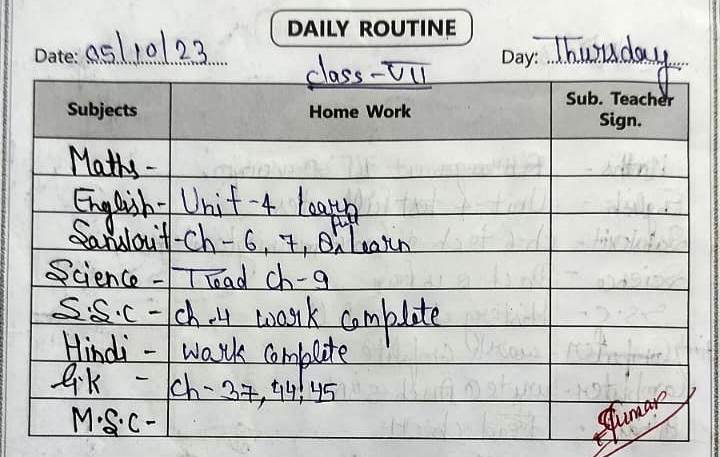 DAILY ROUTINE
Date: 05/10/23 Day: Thursday
class-VII
Subjects Home Work Sub. Teacher Sign.
Maths -
English - Unit-4 learn
full
Sanskrit - Ch-6, 7, 8 Learn
Science - Read ch-9
S.S.C - ch-4 work complete
Hindi - work complete
G.K - Ch-37, 44, 45
M.S.C -